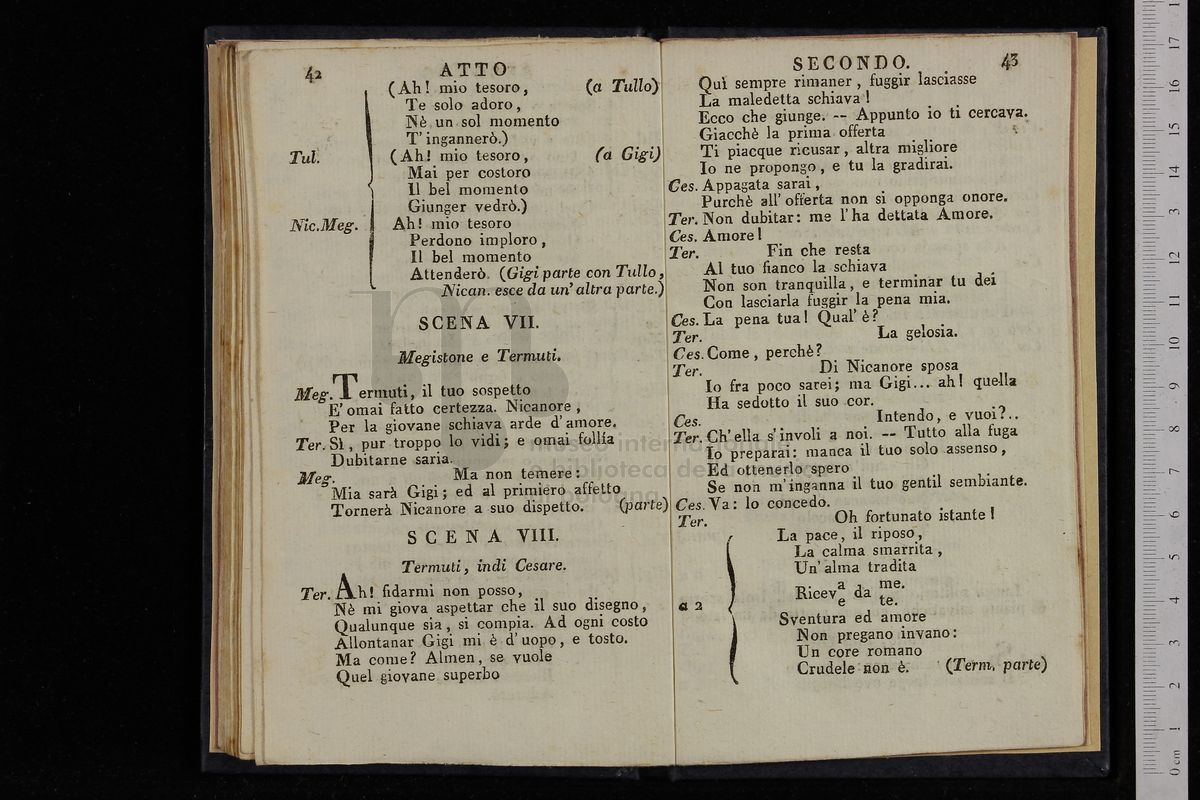 42
ATTO
(Ah! mio tesoro, (a Tullo)
Te solo adoro,
Nè un sol momento
T' ingannerò.)
Tul. (Ah! mio tesoro, (a Gigi)
Mai per costoro
Il bel momento
Giunger vedrò.)
Nic.Meg. Ah! mio tesoro
Perdono imploro,
Il bel momento
Attenderò. (Gigi parte con Tullo,
Nican. esce da un' altra parte.)
SCENA VII.
Megistone e Termuti.
Meg. Termuti, il tuo sospetto
E' omai fatto certezza. Nicanore,
Per la giovane schiava arde d'amore.
Ter. Sì, pur troppo lo vidi; e omai follìa
Dubitarne saria.
Meg. Ma non temere:
Mia sarà Gigi; ed al primiero affetto
Tornerà Nicanore a suo dispetto. (parte)
SCENA VIII.
Termuti, indi Cesare.
Ter. Ah! fidarmi non posso,
Nè mi giova aspettar che il suo disegno,
Qualunque sia, si compia. Ad ogni costo
Allontanar Gigi mi è d'uopo, e tosto.
Ma come? Almen, se vuole
Quel giovane superbo
SECONDO. 43
Quì sempre rimaner, fuggir lasciasse
La maledetta schiava!
Ecco che giunge. -- Appunto io ti cercava.
Giacchè la prima offerta
Ti piacque ricusar, altra migliore
Io ne propongo, e tu la gradirai.
Ces. Appagata sarai,
Purchè all' offerta non si opponga onore.
Ter. Non dubitar: me l'ha dettata Amore.
Ces. Amore!
Ter. Fin che resta
Al tuo fianco la schiava
Non son tranquilla, e terminar tu dei
Con lasciarla fuggir la pena mia.
Ces. La pena tua! Qual' è?
Ter. La gelosia.
Ces. Come, perchè?
Ter. Di Nicanore sposa
Io fra poco sarei; ma Gigi... ah! quella
Ha sedotto il suo cor.
Ces. Intendo, e vuoi?..
Ter. Ch' ella s'involi a noi. -- Tutto alla fuga
Io preparai: manca il tuo solo assenso,
Ed ottenerlo spero
Se non m'inganna il tuo gentil sembiante.
Ces. Va: lo concedo.
Ter. Oh fortunato istante!
La pace, il riposo,
La calma smarrita,
Un' alma tradita
a 2 Ricev a/e da me./te.
Sventura ed amore
Non pregano invano:
Un core romano
Crudele non è. (Term. parte)
m
museo internazionale
e biblioteca della
di bologna
0 cm 1 2 3 4 5 6 7 8 9 10 11 12 13 14 15 16 17